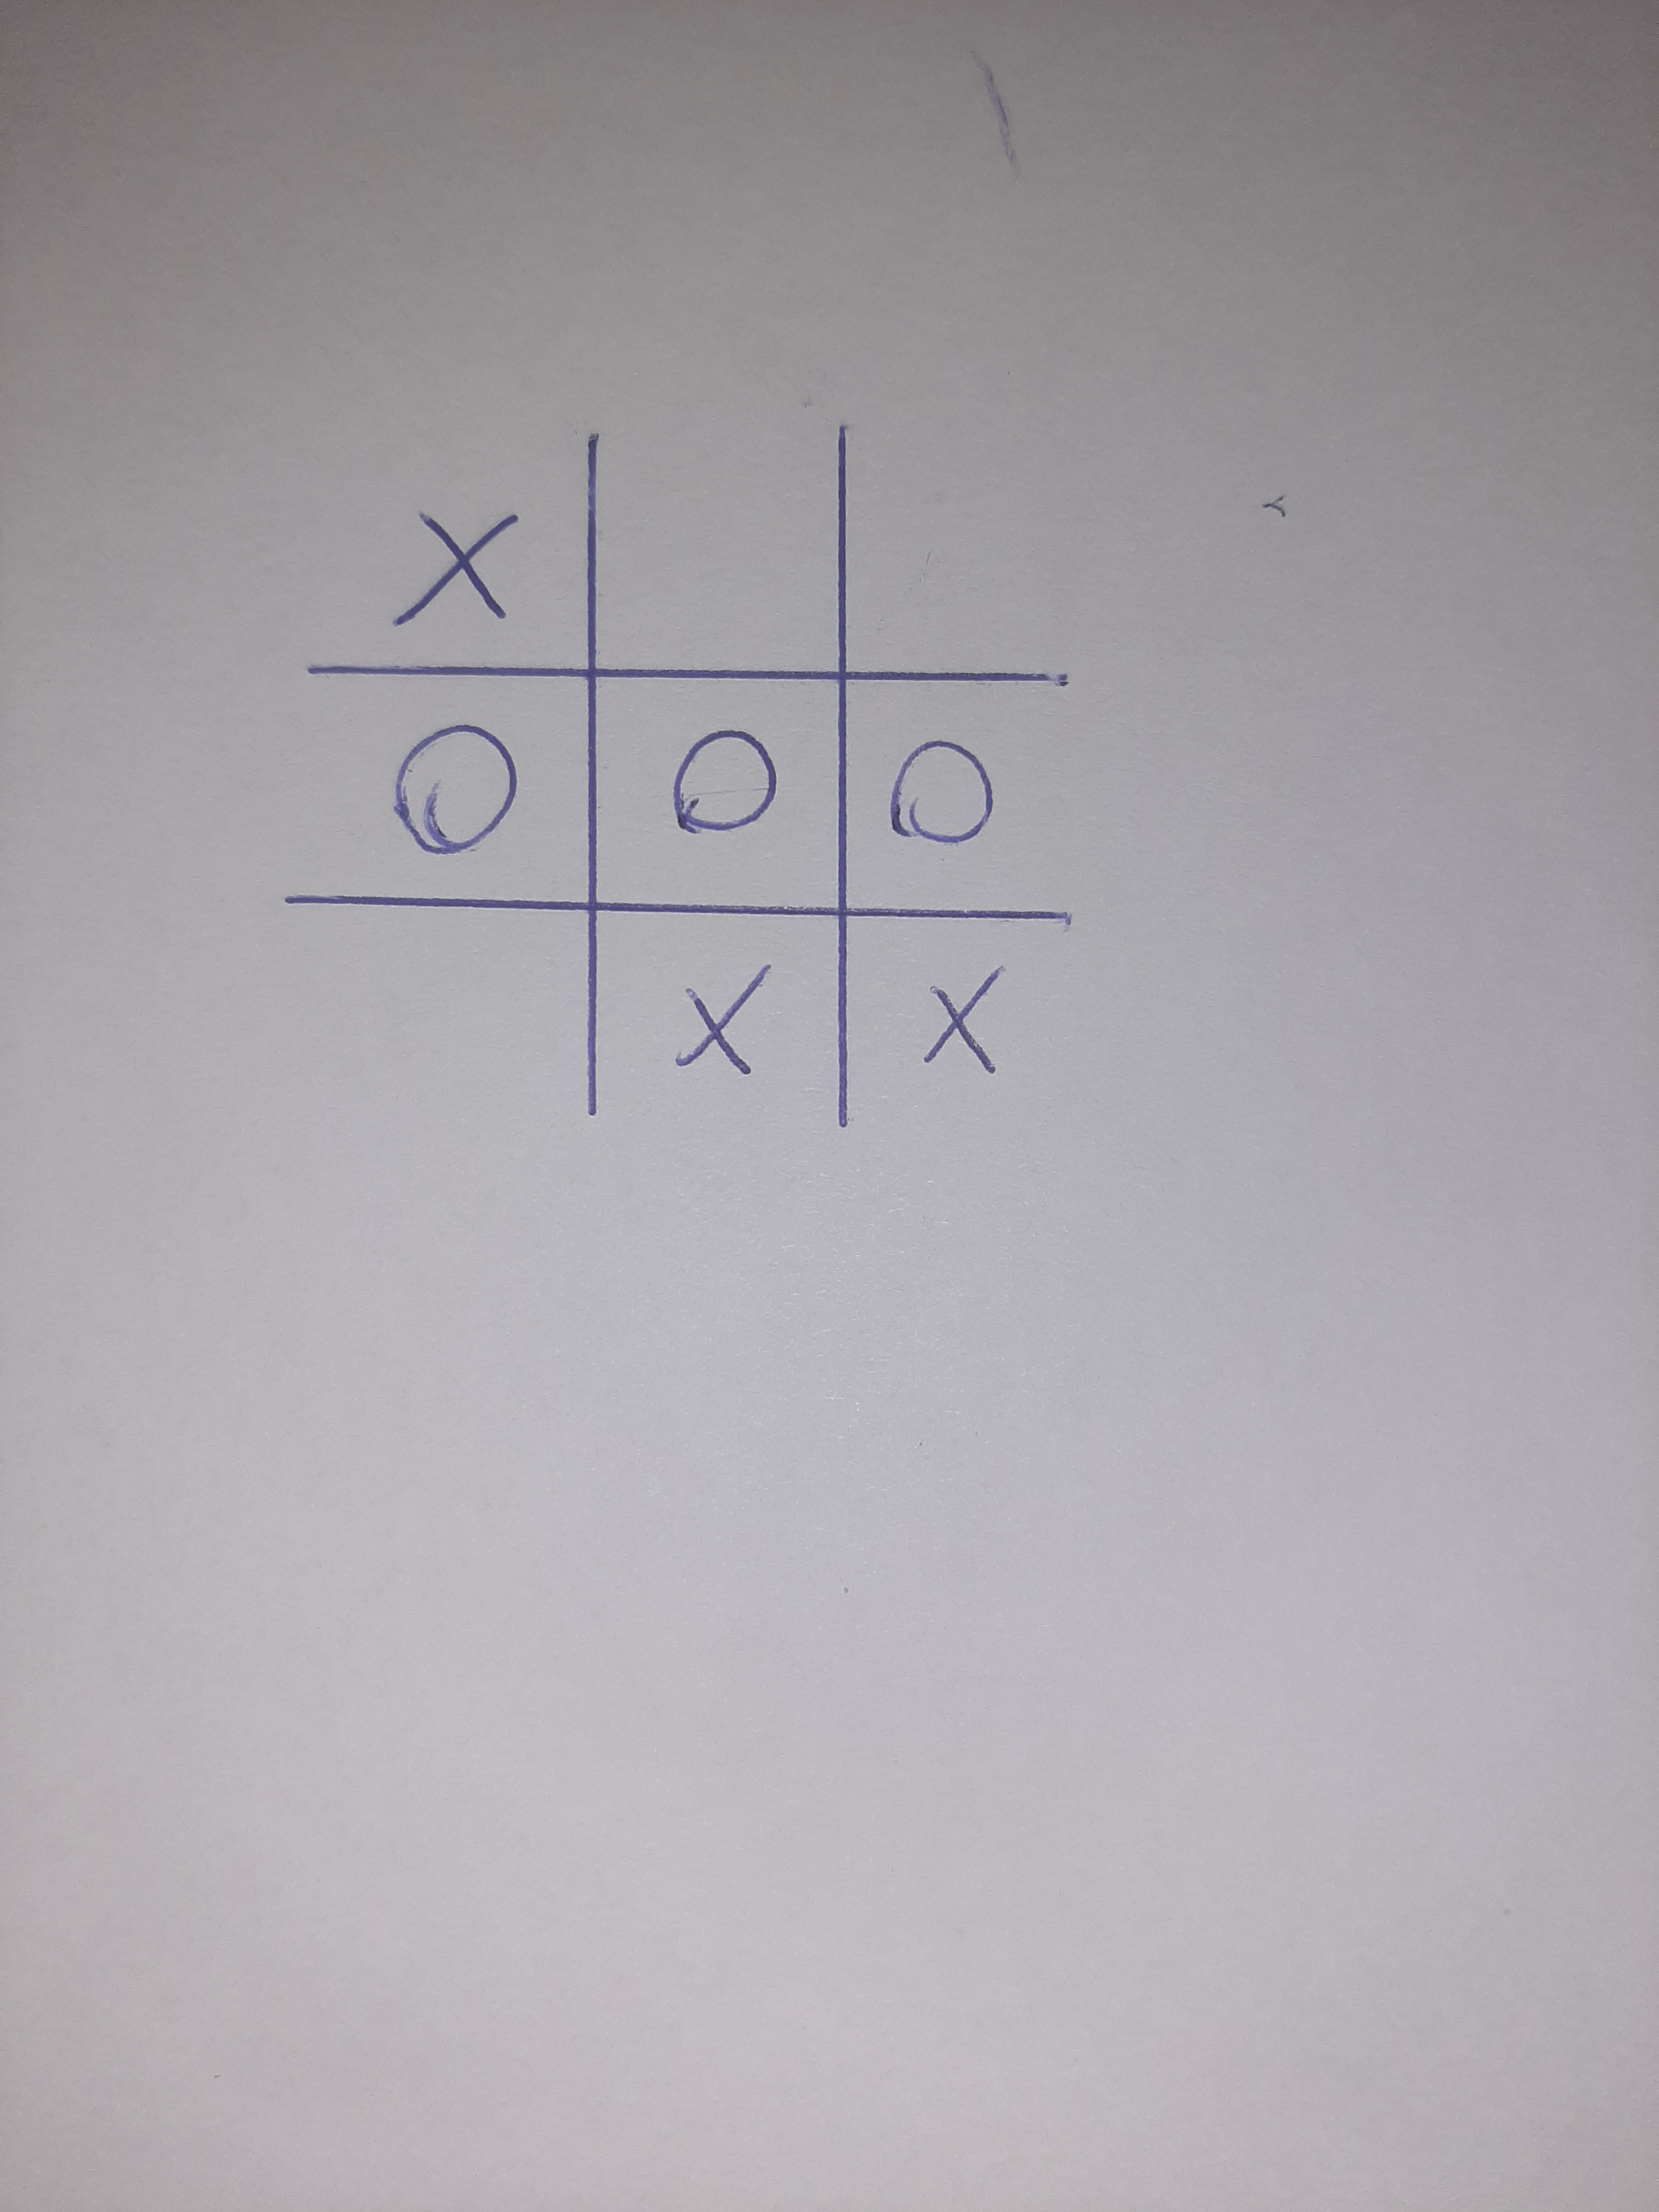 X
O O O
X X